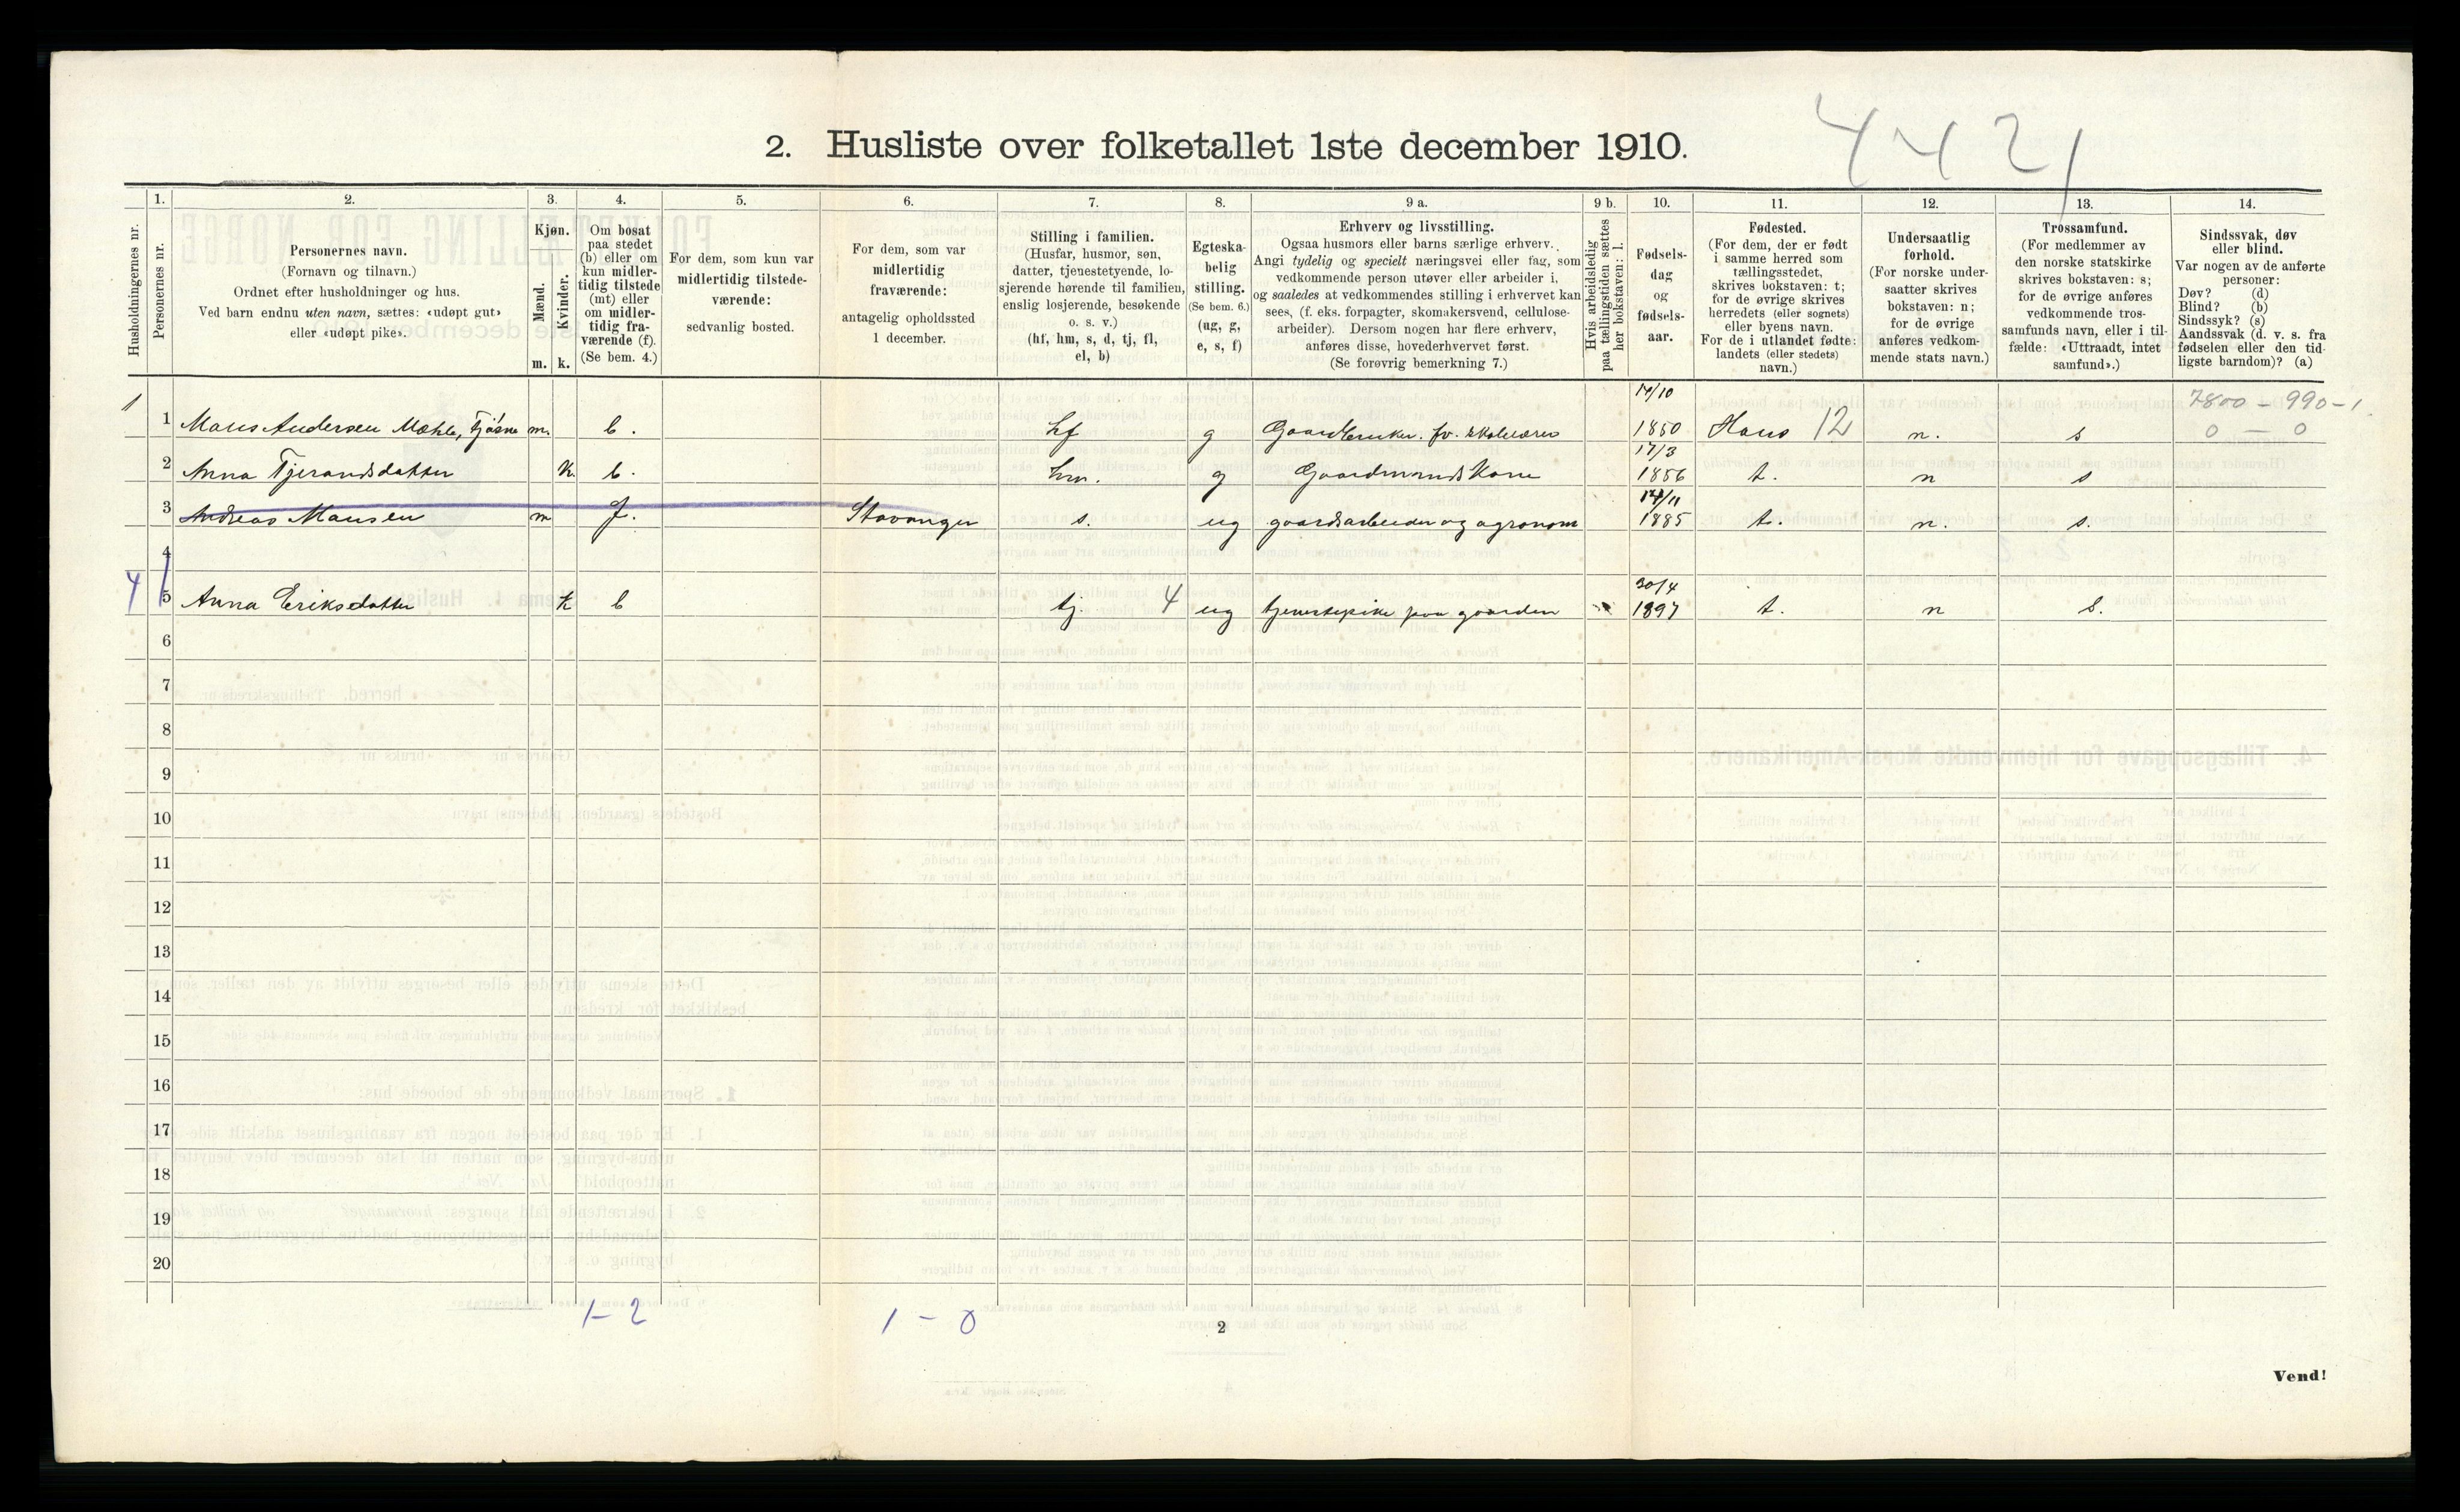 4421
2. Husliste over folketallet 1ste december 1910.
Husholdningernes nr.
1.
Personernes nr.
2.
Personernes navn.
(Fornavn og tilnavn.)
Ordnet efter husholdninger og hus.
Ved barn endnu uten navn, sættes: «udøpt gut»
eller «udøpt pike».
3.
Kjøn.
Mænd.
Kvinder.
m. k.
4.
Om bosat
paa stedet
(b) eller om
kun midler-
tidig tilstede
(mt) eller
om midler-
tidig fra-
værende (f).
(Se bem. 4.)
5.
For dem, som kun var
midlertidig tilstede-
værende:
sedvanlig bosted.
6.
For dem, som var
midlertidig
fraværende:
antagelig opholdssted
1 december.
7.
Stilling i familien.
(Husfar, husmor, søn,
datter, tjenestetyende, lo-
sjerende hørende til familien,
enslig losjerende, besøkende
o. s. v.)
(hf, hm, s, d, tj, fl,
el, b)
8.
Egteska-
belig
stilling.
(Se bem. 6.)
(ug, g,
e, s, f)
9 a.
Erhverv og livsstilling.
Ogsaa husmors eller barns særlige erhverv.
Angi tydelig og specielt næringsvei eller fag, som
vedkommende person utøver eller arbeider i,
og saaledes at vedkommendes stilling i erhvervet kan
sees, (f. eks. forpagter, skomakersvend, cellulose-
arbeider). Dersom nogen har flere erhverv,
anføres disse, hovederhvervet først.
(Se forøvrig bemerkning 7.)
9 b.
Hvis arbeidsledig
paa tællingstiden sættes
her bokstaven: l.
10.
Fødsels-
dag
og
fødsels-
aar.
11.
Fødested.
(For dem, der er født
i samme herred som
tællingsstedet,
skrives bokstaven: t;
for de øvrige skrives
herredets (eller sognets)
eller byens navn.
For de i utlandet fødte:
landets (eller stedets)
navn.)
12.
Undersaatlig
forhold.
(For norske under-
saatter skrives
bokstaven: n;
for de øvrige
anføres vedkom-
mende stats navn.)
13.
Trossamfund.
(For medlemmer av
den norske statskirke
skrives bokstaven: s;
for de øvrige anføres
vedkommende tros-
samfunds navn, eller i til-
fælde: «Uttraadt, intet
samfund».)
14.
Sindssvak, døv
eller blind.
Var nogen av de anførte
personer:
Døv? (d)
Blind? (b)
Sindssyk? (s)
Aandssvak (d. v. s. fra
fødselen eller den tid-
ligste barndom)? (a)
1 14/10 7800 - 990 - 1
1 Mons Andersen Mæhle, Tjøsne m. b. hf g Gaardbruker. fv. skolelærer 1850 Haus 12 n. s 0 - 0
17/3
2 Anna Tjerandsdatter k. b. hm. g Gaardmandskone 1856 t. n s
14/11
3 Andreas Monsen m f. Stavanger s. ug gaardsarbeider og agronom 1885 t. n. s.
4
30/4
4 5 Anna Eriksdatter k b tj. 4 ug tjenestepike paa gaarden 1897 t. n s.
6
7
8
9
10
11
12
13
14
15
16
17
18
19
20
1-2 1 - 0
2
Vend!